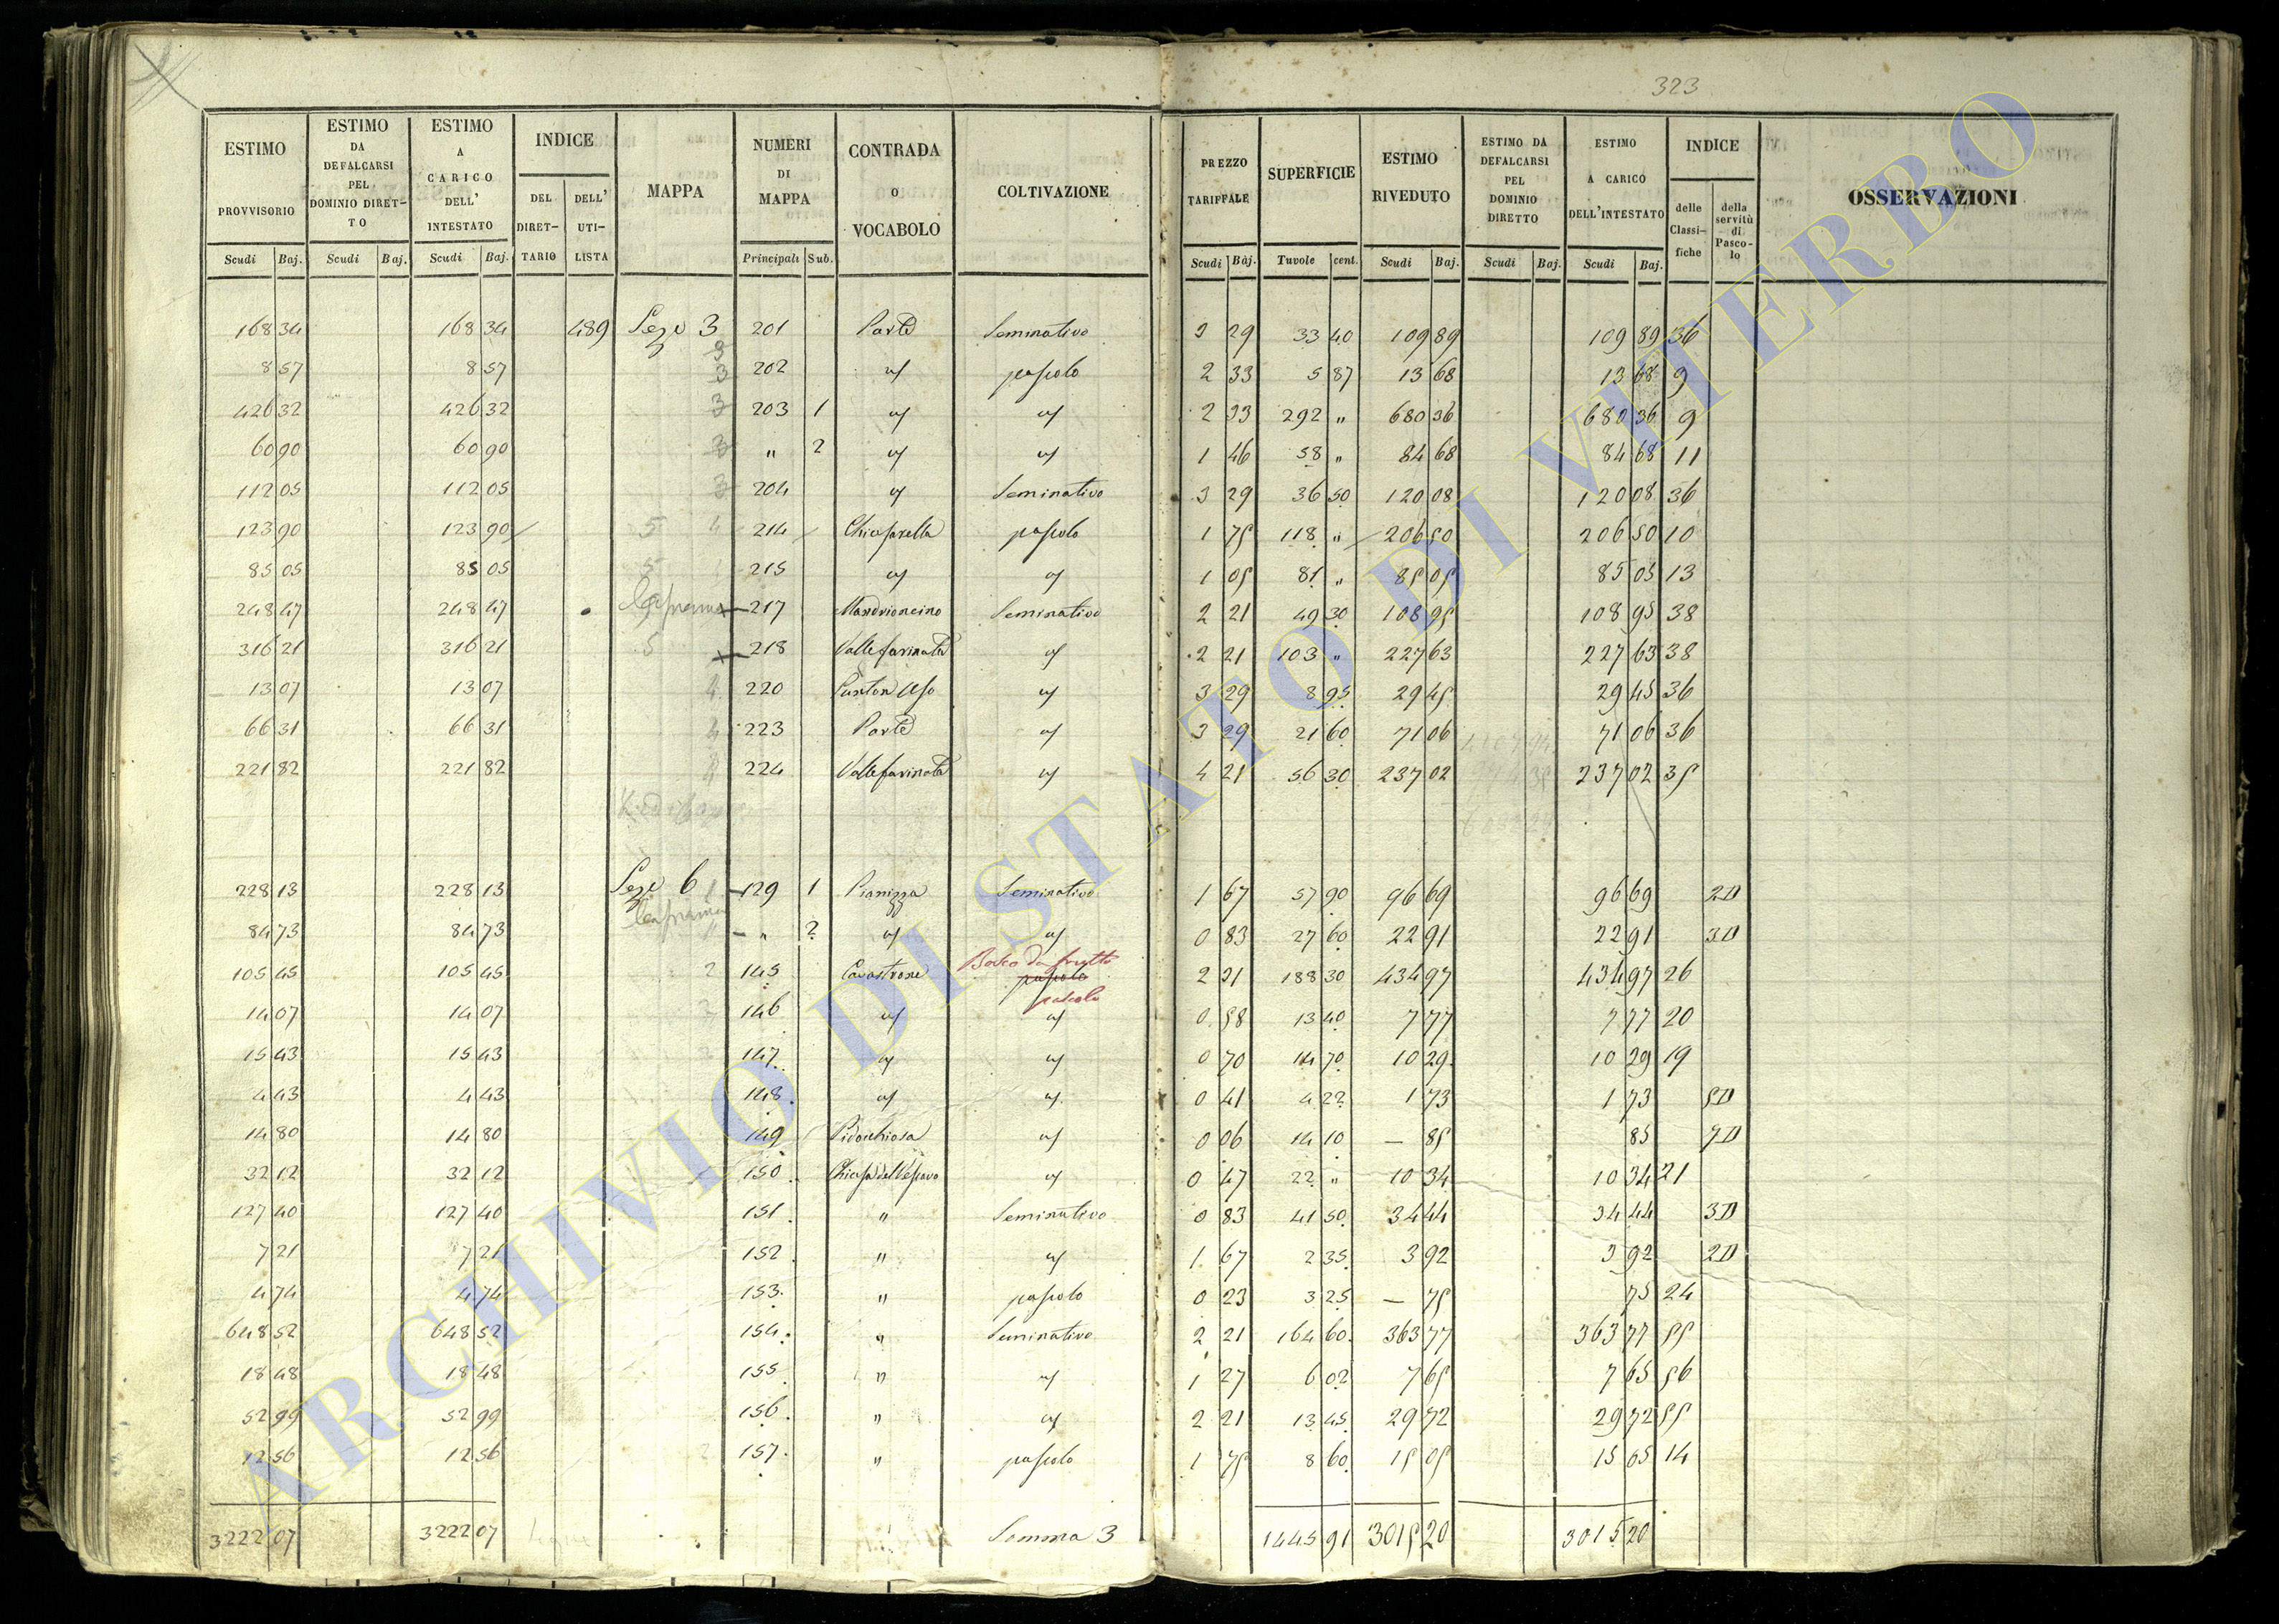 323
ESTIMO PROVVISORIO | ESTIMO DA DEFALCARSI PEL DOMINIO DIRET-TO | ESTIMO A CARICO DELL' INTESTATO | INDICE DEL DIRET-TARIO | DELL' UTI-LISTA | MAPPA | NUMERI DI MAPPA | CONTRADA O VOCABOLO | COLTIVAZIONE | PREZZO TARIFFALE | SUPERFICIE | ESTIMO RIVEDUTO | ESTIMO DA DEFALCARSI PEL DOMINIO DIRETTO | ESTIMO A CARICO DELL'INTESTATO | INDICE delle Classi-fiche | della servitù di Pasco-lo | OSSERVAZIONI
Scudi | Baj. | Scudi | Baj. | Scudi | Baj. | Principali | Sub. | Scudi | Baj. | Tavole | cent. | Scudi | Baj. | Scudi | Baj. | Scudi | Baj.
168 34 | 168 34 | 489 | Seze 3 | 201 | Parte | Seminativo | 3 29 | 33 40 | 109 89 | 109 89 | 36
8 57 | 8 57 | 3 | 202 | " | pascolo | 2 33 | 5 87 | 13 68 | 13 68 | 9
426 32 | 426 32 | 3 | 203 | 1 | " | " | 2 33 | 292 " | 680 36 | 680 36 | 9
60 90 | 60 90 | 3 | " | 2 | " | " | 1 46 | 58 " | 84 68 | 84 68 | 11
112 05 | 112 05 | 3 | 204 | " | Seminativo | 3 29 | 36 50 | 120 08 | 120 08 | 36
123 90 | 123 90 | 5 4 | 214 | Chiusarella | pascolo | 1 75 | 118 " | 206 50 | 206 50 | 10
85 05 | 85 05 | 5 | 215 | " | " | 1 05 | 81 " | 85 05 | 85 05 | 13
248 47 | 248 47 | 217 | Mandrioncino | Seminativo | 2 21 | 49 30 | 108 95 | 108 95 | 38
316 21 | 316 21 | 5 | 218 | Valle farinata | " | 2 21 | 103 " | 227 63 | 227 63 | 38
13 07 | 13 07 | 4 | 220 | " | 3 29 | 8 95 | 29 45 | 29 45 | 36
66 31 | 66 31 | 4 | 223 | Parte | " | 3 29 | 21 60 | 71 06 | 71 06 | 36
221 82 | 221 82 | 224 | Valle farinata | " | 4 21 | 56 30 | 237 02 | 237 02 | 35
228 13 | 228 13 | Seze 6 | 129 | 1 | Pianizza | Seminativo | 1 67 | 57 90 | 96 69 | 96 69 | 2D
84 73 | 84 73 | " | 2 | " | " | 0 83 | 27 60 | 22 91 | 22 91 | 3D
Bosco da frutto
105 45 | 105 45 | 2 | 145 | Cavastrone | pascolo | 2 31 | 188 30 | 434 97 | 434 97 | 26
pascolo
14 07 | 14 07 | 146 | " | " | 0 58 | 13 40 | 7 77 | 7 77 | 20
15 43 | 15 43 | 147 | " | " | 0 70 | 14 70 | 10 29 | 10 29 | 19
4 43 | 4 43 | 148 | " | " | 0 41 | 4 22 | 1 73 | 1 73 | 5D
14 80 | 14 80 | 149 | Pidocchiosa | " | 0 06 | 14 10 | — 85 | 85 | 7D
32 12 | 32 12 | 150 | Chiusa del Vescovo | " | 0 47 | 22 " | 10 34 | 10 34 | 21
127 40 | 127 40 | 151 | " | Seminativo | 0 83 | 41 50 | 34 44 | 34 44 | 3D
7 21 | 7 21 | 152 | " | " | 1 67 | 2 35 | 3 92 | 3 92 | 2D
4 74 | 4 74 | 153 | " | pascolo | 0 23 | 3 25 | — 75 | 75 | 24
648 52 | 648 52 | 154 | " | Seminativo | 2 21 | 164 60 | 363 77 | 363 77 | 55
18 48 | 18 48 | 155 | " | " | 1 27 | 6 02 | 7 65 | 7 65 | 56
52 99 | 52 99 | 156 | " | " | 2 21 | 13 45 | 29 72 | 29 72 | 55
12 56 | 12 56 | 2 | 157 | " | pascolo | 1 75 | 8 60 | 15 05 | 15 05 | 14
3222 07 | 3222 07 | Somma 3 | 1445 91 | 3015 20 | 3015 20
ARCHIVIO DI STATO DI VITERBO